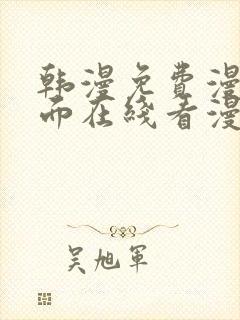 韩漫免费漫
而在线看漫
吴旭军